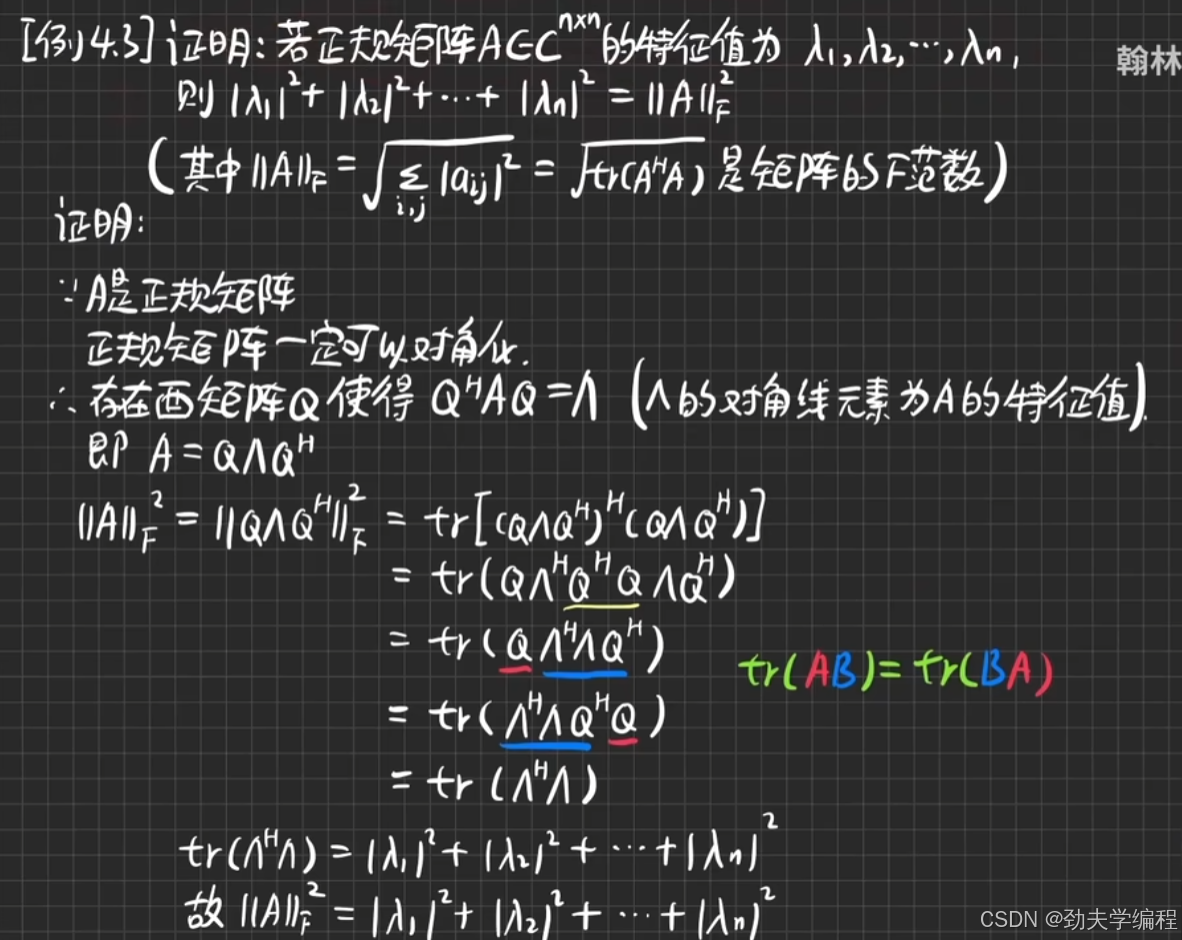 [例4.3] 证明: 若正规矩阵A∈C^{n×n}的特征值为 λ₁,λ₂,⋯,λn,
翰林
则 |λ₁|²+|λ₂|²+⋯+|λn|² = ||A||_F²
(其中||A||_F = √(Σ_{i,j} |aij|²) = √(tr(A^HA)) 是矩阵的F范数)
证明:
∵A是正规矩阵
正规矩阵一定可以对角化.
∴存在酉矩阵Q使得 Q^HAQ=Λ (Λ的对角线元素为A的特征值).
即 A=QΛQ^H
||A||_F² = ||QΛQ^H||_F² = tr[(QΛQ^H)^H(QΛQ^H)]
= tr(QΛ^HQ^HQΛQ^H)
= tr(QΛ^HΛQ^H)
tr(AB)=tr(BA)
= tr(Λ^HΛQ^HQ)
= tr(Λ^HΛ)
tr(Λ^HΛ) = |λ₁|²+|λ₂|²+⋯+|λn|²
故 ||A||_F² = |λ₁|²+|λ₂|²+⋯+|λn|²
CSDN @劲夫学编程